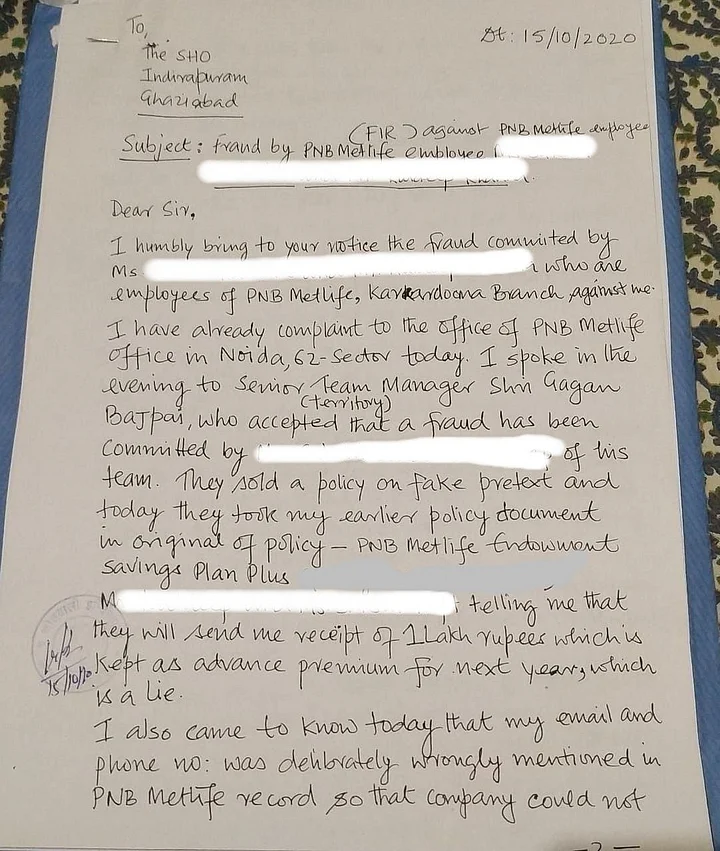 To,
Dt: 15/10/2020
The SHO
Indirapuram
Ghaziabad
(FIR) against PNB Metlife employee
Subject: Fraud by PNB Metlife employee
Dear Sir,
I humbly bring to your notice the fraud committed by
Ms who are
employees of PNB Metlife, Karkardooma Branch against me.
I have already complaint to the office of PNB Metlife
office in Noida, 62-Sector today. I spoke in the
evening to Senior Team Manager Shri Gagan
(territory)
Bajpai, who accepted that a fraud has been
committed by of his
team. They sold a policy on fake pretext and
today they took my earlier policy document
in original of policy - PNB Metlife Endowment
Savings Plan Plus
M telling me that
they will send me receipt of 1 Lakh rupees which is
kept as advance premium for next year, which
is a lie.
15/10/20
I also came to know today that my email and
phone no: was delibrately wrongly mentioned in
PNB Metlife record so that company could not